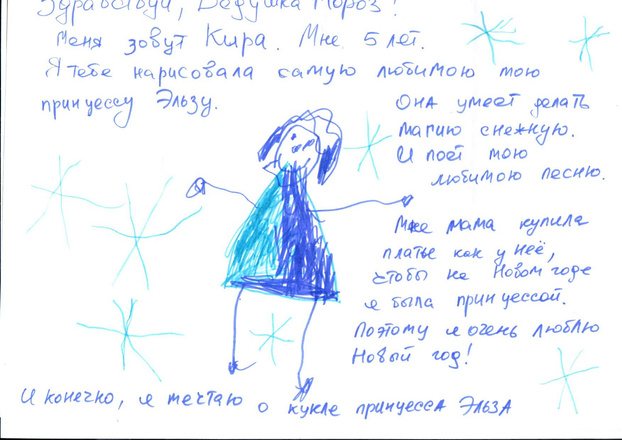 Здравствуй, Дедушка Мороз!
Меня зовут Кира. Мне 5 лет.
Я тебе нарисовала самую любимою мою
принцессу Эльзу.
Она умеет делать
магию снежную.
И поёт мою
любимою песню.
Мне мама купила
платье как у неё,
чтобы на Новом годе
я была принцессой.
Поэтому я очень люблю
Новый год!
И конечно, я мечтаю о кукле принцесса Эльза